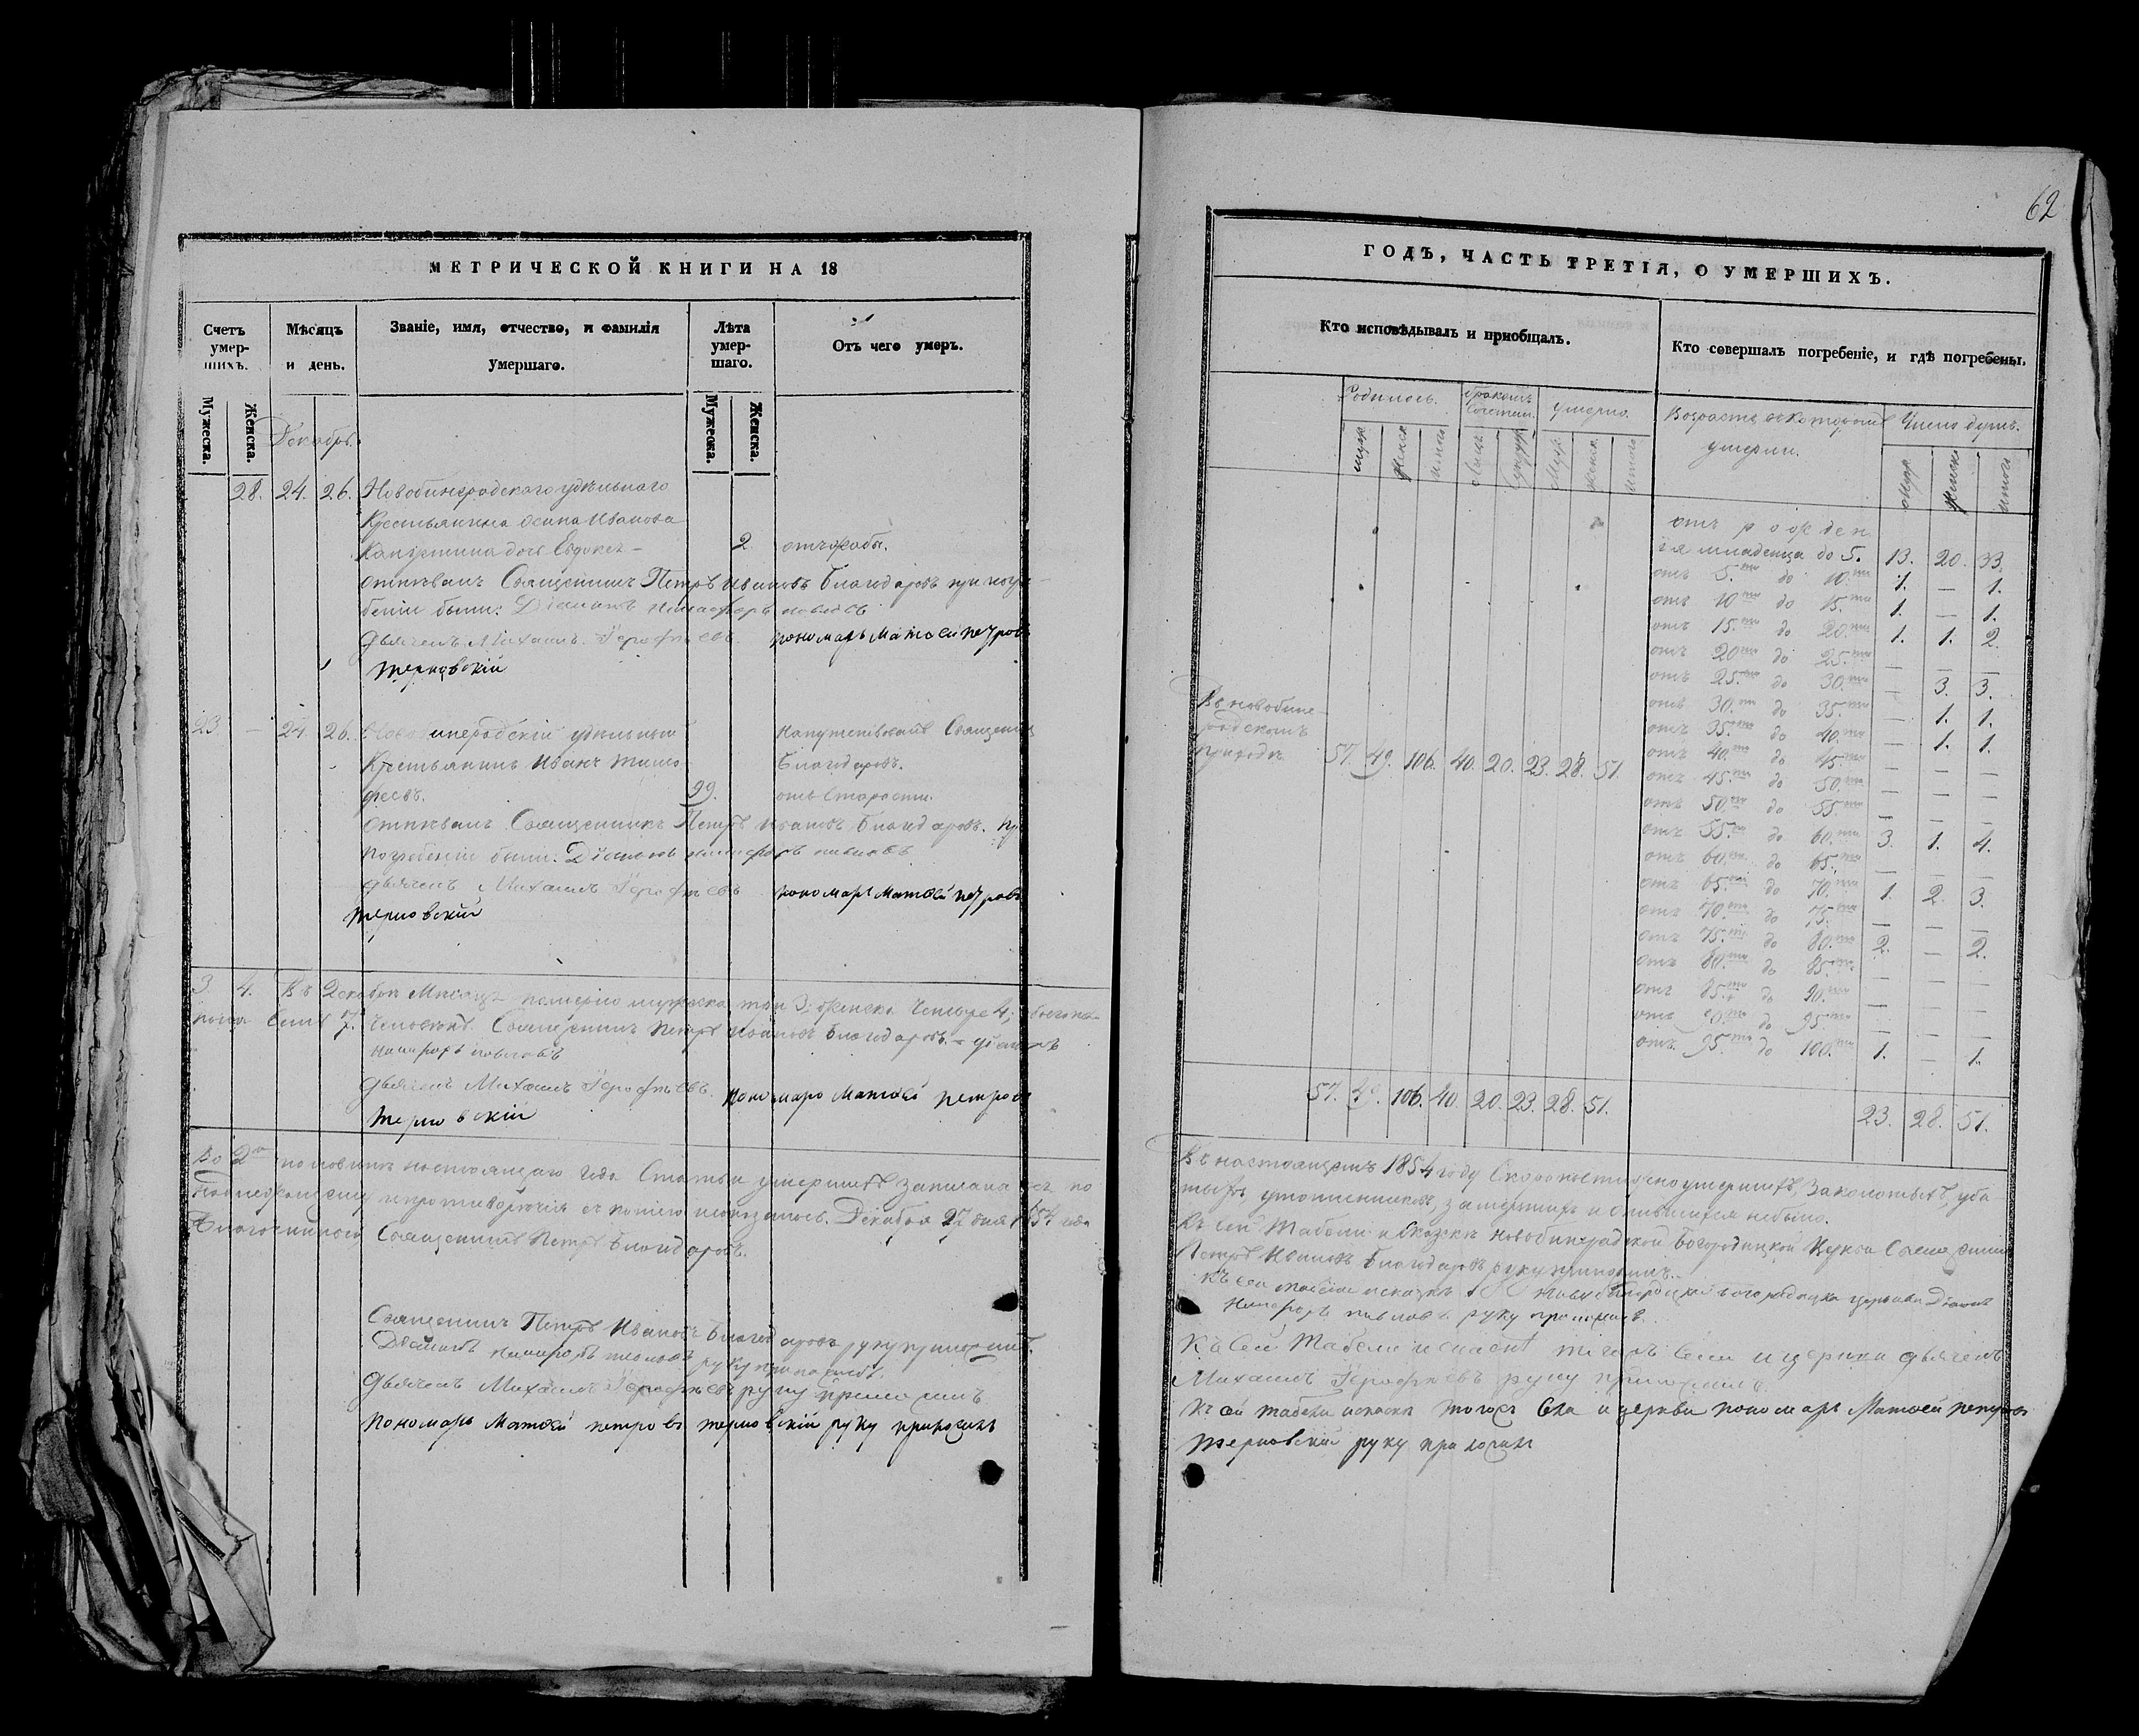 62
МЕТРИЧЕСКОЙ КНИГИ НА 18
Счетъ умер-шихъ.
Мѣсяцъ и день.
Званіе, имя, отчество, и фамилія умершаго.
Лѣта умер-шаго.
Отъ чего умеръ.
Мужеска.
Женска.
Мужеска.
Женска.
Декабрь.
28. 24. 26. Новобинарадскаго удѣльнаго
Крестьянина Осипа Иванова
дочь Евдокея 2. отъ
отпѣвалъ Священникъ Петръ Ивановъ Благодаровъ при погре-
беніи были: Діаконъ Никифоръ Павловъ
Дьячекъ Михаилъ Ерофѣевъ. пономарь Матвей Петровъ
Терновскій
23. — 24. 26. Новобинарадскій удѣльный напутствовалъ Священникъ
Крестьянинъ Иванъ Тимо- Благодаровъ.
феевъ. 99. отъ старости.
отпѣвалъ Священникъ Петръ Ивановъ Благодаровъ. при
погребеніи были: Діаконъ Никифоръ Павловъ
Дьячекъ Михаилъ Ерофѣевъ пономарь Матвей Петровъ
Терновскій
3. 4. Въ Декабрѣ Мѣсяцѣ померло мужеска три 3. женска четыре 4; обоего по-
пола семь 7. человѣкъ. Священникъ Петръ Ивановъ Благодаровъ. — діаконъ
Никифоръ Павловъ
Дьячекъ Михаилъ Ерофѣевъ. пономарь Матвей Петровъ
Терновскій
Во 2й половинѣ настоящаго года Статья умершихъ записана по
Декабря 27 дня 1854 года
Благочинный Священникъ Петръ Благодаровъ.
Священникъ Петръ Ивановъ Благодаровъ руку приложилъ.
Діаконъ Никифоръ Павловъ руку приложилъ.
Дьячекъ Михаилъ Ерофѣевъ руку приложилъ
Пономарь Матвей Петровъ Терновскій руку приложилъ
ГОДЪ, ЧАСТЬ ТРЕТІЯ, О УМЕРШИХЪ.
Кто исповѣдывалъ и пріобщалъ.
Кто совершалъ погребеніе, и гдѣ погребены.
Родилось. бракомъ сочетан. умерло.
муж. женск. итого муж. женск. итого
Возрастъ въ которомъ умерли. Число душъ.
муж. женск. итого
отъ рожден
ія младенца до 5. 13. 20. 33.
отъ 5. до 10. 1. — 1.
отъ 10 до 15. 1. — 1.
отъ 15. до 20. 1. 1. 2.
отъ 20 до 25. — — —
отъ 25. до 30. — 3. 3.
отъ 30. до 35. — 1. 1.
отъ 35. до 40. — 1. 1.
отъ 40. до 45. — — —
отъ 45. до 50. — — —
отъ 50. до 55. — — —
отъ 55. до 60. 3. 1. 4.
отъ 60. до 65. — — —
отъ 65. до 70. 1. 2. 3.
отъ 70. до 75. — — —
отъ 75. до 80. 2. — 2.
отъ 80. до 85. — — —
отъ 85. до 90. — — —
отъ 90. до 95. — — —
отъ 95. до 100. 1. — 1.
Въ новобина-
радскомъ
приходѣ 57. 49. 106. 40. 20. 23. 28. 51.
57. 49. 106. 40. 20. 23. 28. 51. 23. 28. 51.
Въ настоящемъ 1854 году Скоропостижно умершихъ, Заколотыхъ, уби-
тыхъ, утопленниковъ, замерзшихъ и опившихся небыло.
Къ сей Табели и сказкѣ Новобинарадской Богородицкой Церкви Священникъ
Петръ Ивановъ Благодаровъ руку приложилъ.
Къ сей табели и сказкѣ Новобинарадской Богородицкой церкви Діаконъ
Никифоръ Павловъ руку приложилъ.
Къ сей Табели и сказкѣ тогожъ Села и церкви дьячекъ
Михаилъ Ерофѣевъ руку приложилъ.
Къ сей табели и сказки тогожъ Села и церкви пономарь Матвей Петровъ
Терновскій руку приложилъ